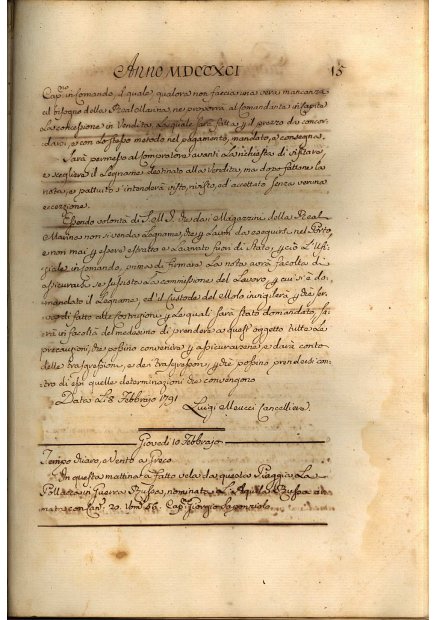 Anno MDCCXCI 15
Cap.º in Comando, il quale qualora non faccia una vera mancanza
al bisogno della Real Marina, ne proverrà al Comandante in Capite
la concessione in Vendita, la quale sarà fatta p il prezzo da concor-
darsi, e con lo stesso metodo nel pagamento, mandato, e consegna.
Sarà permesso al Compratore avanti la richiesta di visitare,
e vegliare il Legname destinato alla Vendita, ma dopo fattane la
nota, e pattuito s'intenderà visto, rivisto, ed accettato senza veruna
eccezzione.
Essendo volontà di S. M. che da i Magazzini della Real
Marina non si venda Legname, che p Lavori da eseguirsi nel Porto,
e non mai p essere estratto e lavorato fuori di Stato, p ciò l'Uffi-
ziale in Comando, prima di firmare la nota avrà facoltà di
assicurarsi se sussista la commissione del Lavoro, p cui si è do-
mandato il Legname, ed il Custode del Molo invigilerà p che ser-
va di fatto alle costruzioni p le quali sarà stato domandato, sa-
rà in facoltà del medesimo di prendere a quest' oggetto tutte le
precauzioni, che possino convenire p assicurarsene, e darà conto
delle trasgressioni, e dei Trasgressori, p che possino prendersi con-
tro di essi quelle determinazioni che convengono
Data li 8 Febbrajo 1791
Luigi Meucci Cancelliere.
Giovedì 10 Febbrajo
Tempo chiaro, e Vento a Greco
In questa mattina a fatto vela da questa Piaggia La
Pollacca in Guerra Russa, nominata L'Aquila Russa ar-
mata con Can. 20. Uom. 56. Cap.º Giorgio